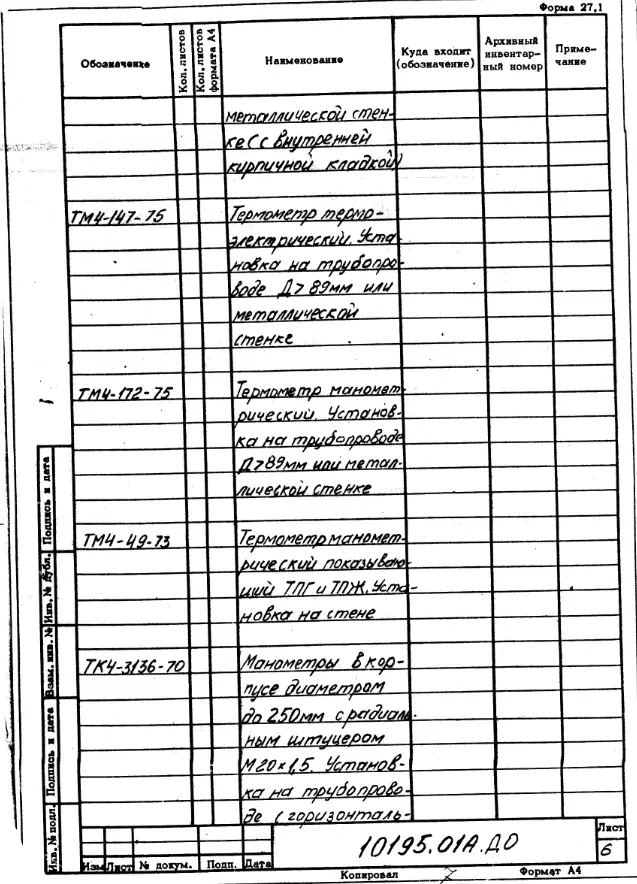 Форма 27.1
Обозначение
Кол. листов
Кол. листов формата А4
Наименование
Куда входит (обозначение)
Архивный инвентарный номер
Примечание
металлической стен-
ке (с внутренней
кирпичной кладкой)
ТМ4-147-75
Термометр термо-
электрический. Уста-
новка на трубопро-
воде Д>89мм или
металлической
стенке
ТМ4-172-75
Термометр маномет-
рический. Установ-
ка на трубопроводе
Д>89мм или метал-
лической стенке
ТМ4-49-73
Термометр маномет-
рический показываю-
щий ТПГ и ТПЖ. Уста-
новка на стене
ТК4-3136-70
Манометры в кор-
пусе диаметром
до 250мм с радиаль-
ным штуцером
М20×1,5. Установ-
ка на трубопрово-
де (горизонталь-
Инв.№ подл.
Подпись и дата
Взам. инв. №
Инв.№ дубл.
Подпись и дата
Изм Лист № докум. Подп. Дата
10195.01А.ДО
Лист
6
Копировал
Формат А4